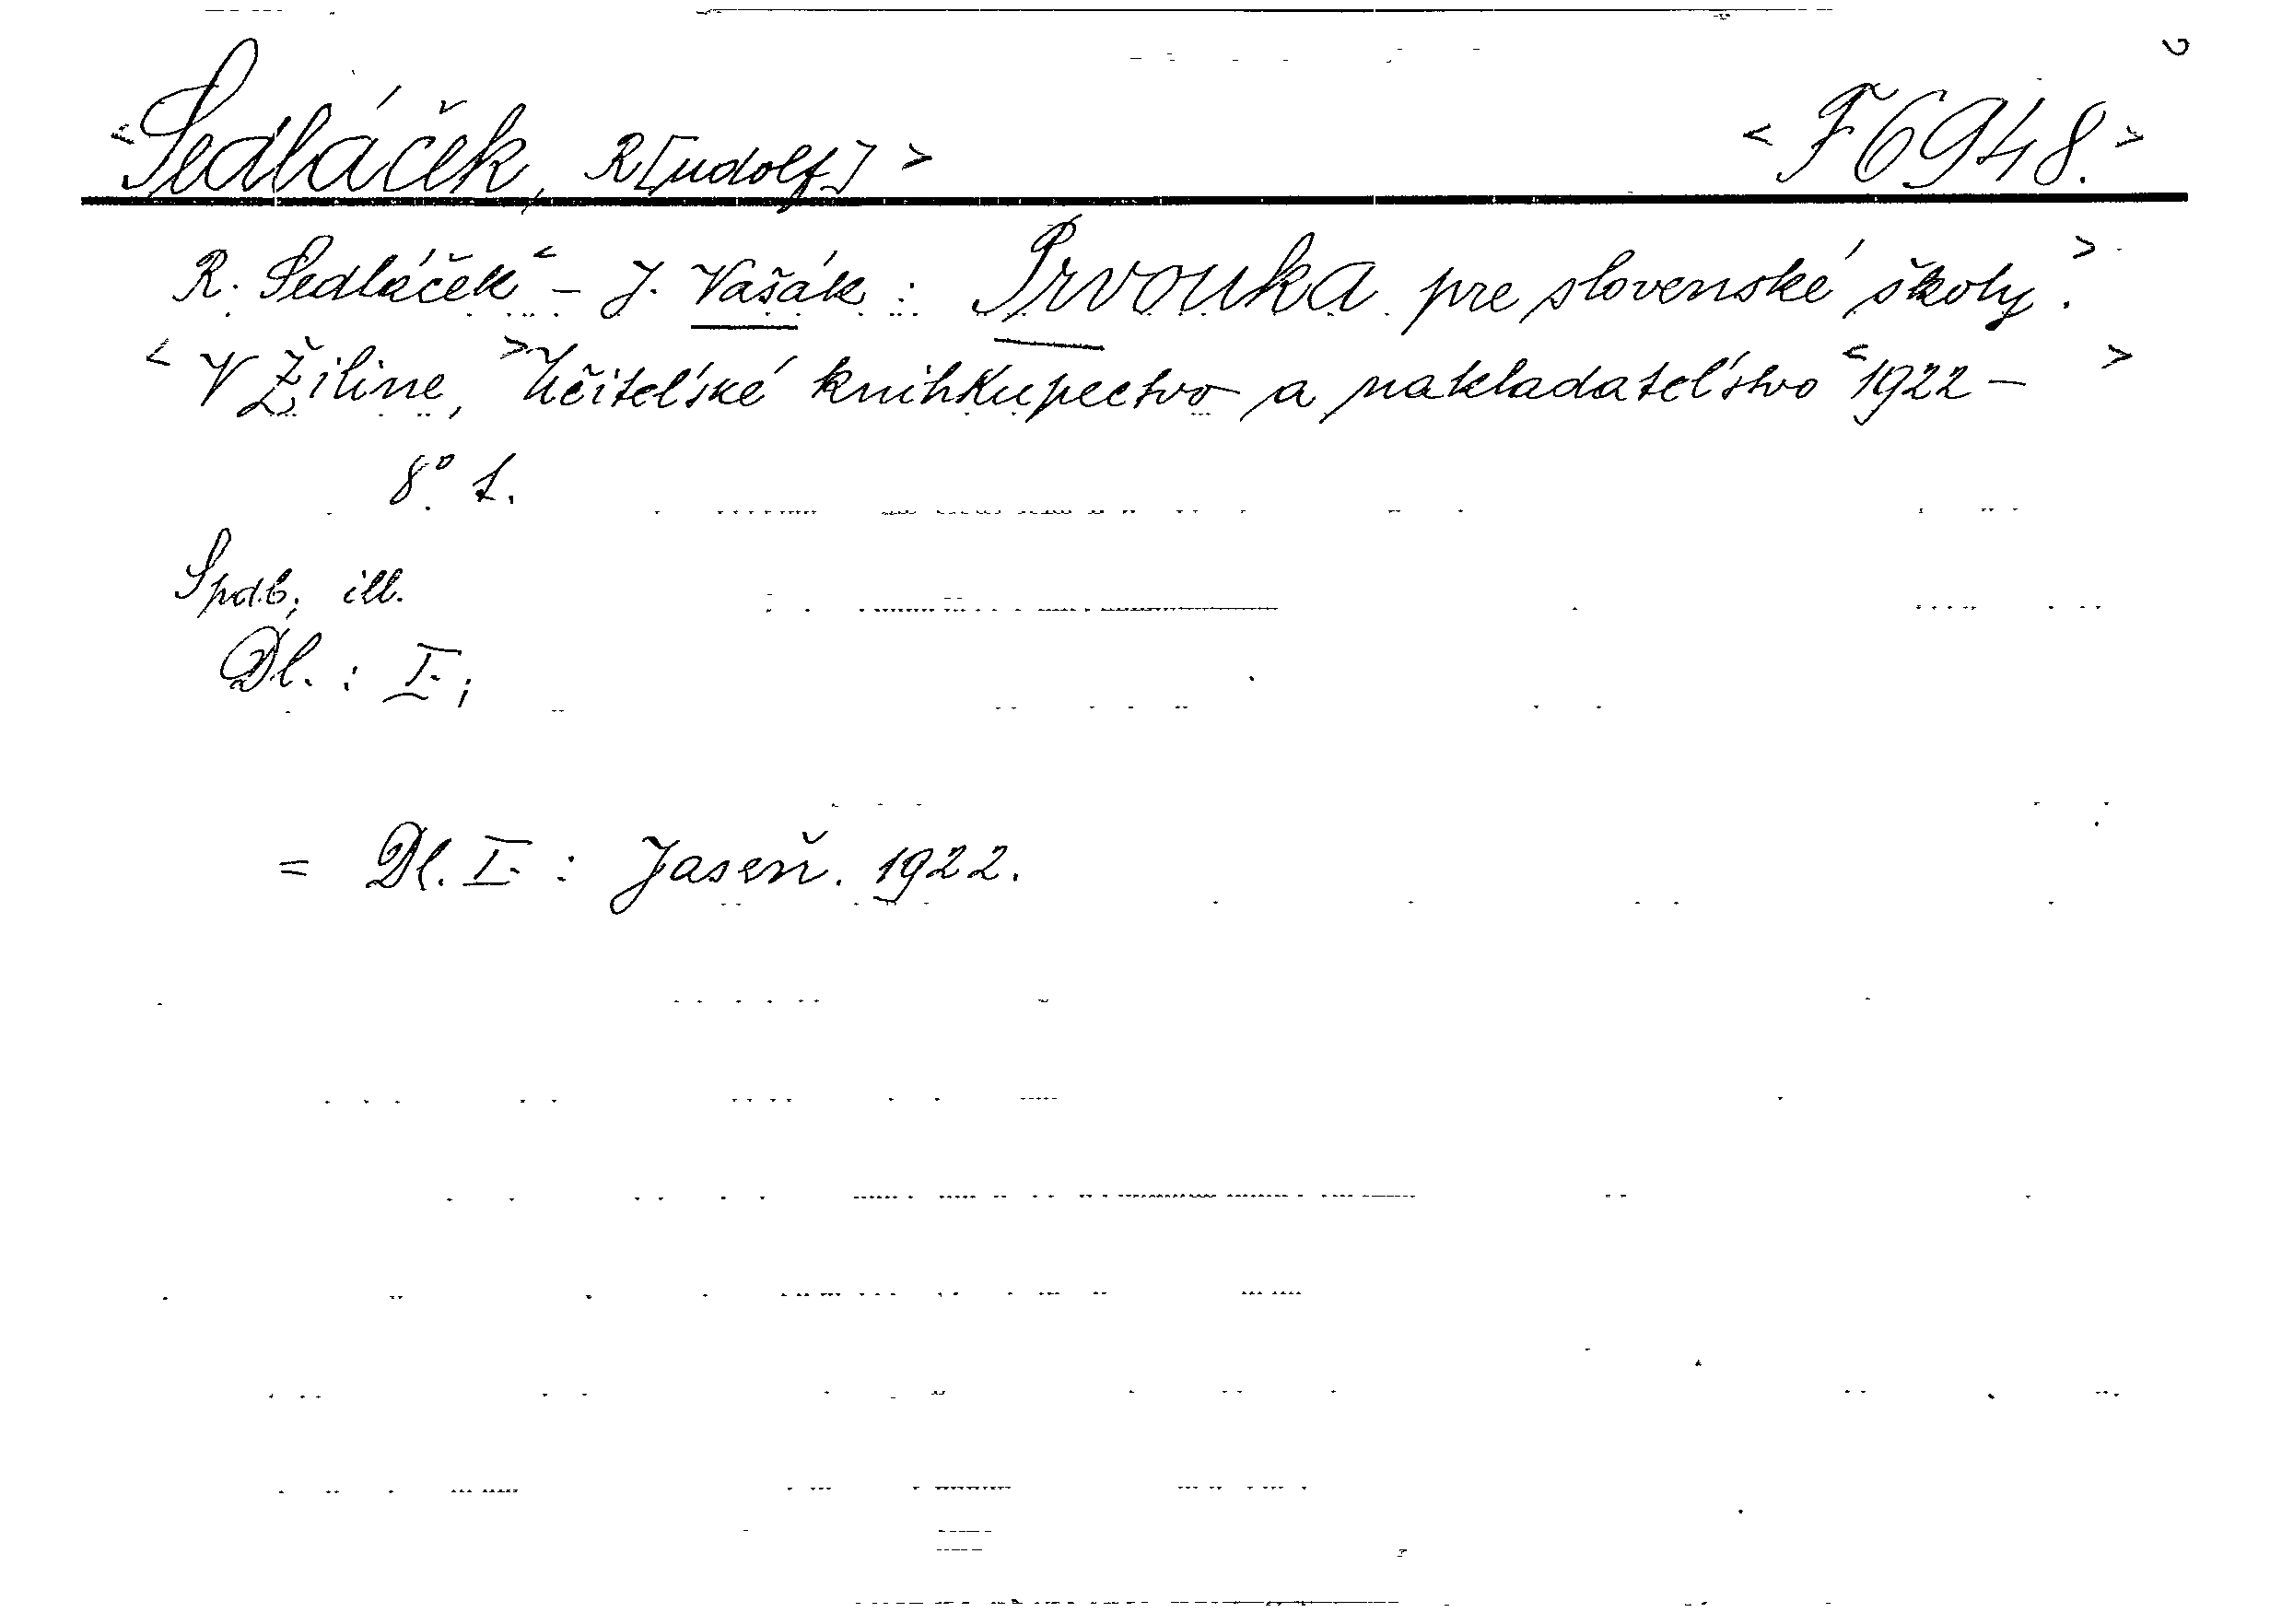 <Sedláček, R[udolf]> <F 6948.>
R. Sedláček< – J. Vašák : Prvouka pre slovenské školy.>
<V Žiline, >Učiteľské knihkupectvo a nakladateľstvo <1922 – >
8° 1.
Spdb, ill.
Dl. : I. ;
= Dl. I. : Jaseň. 1922.